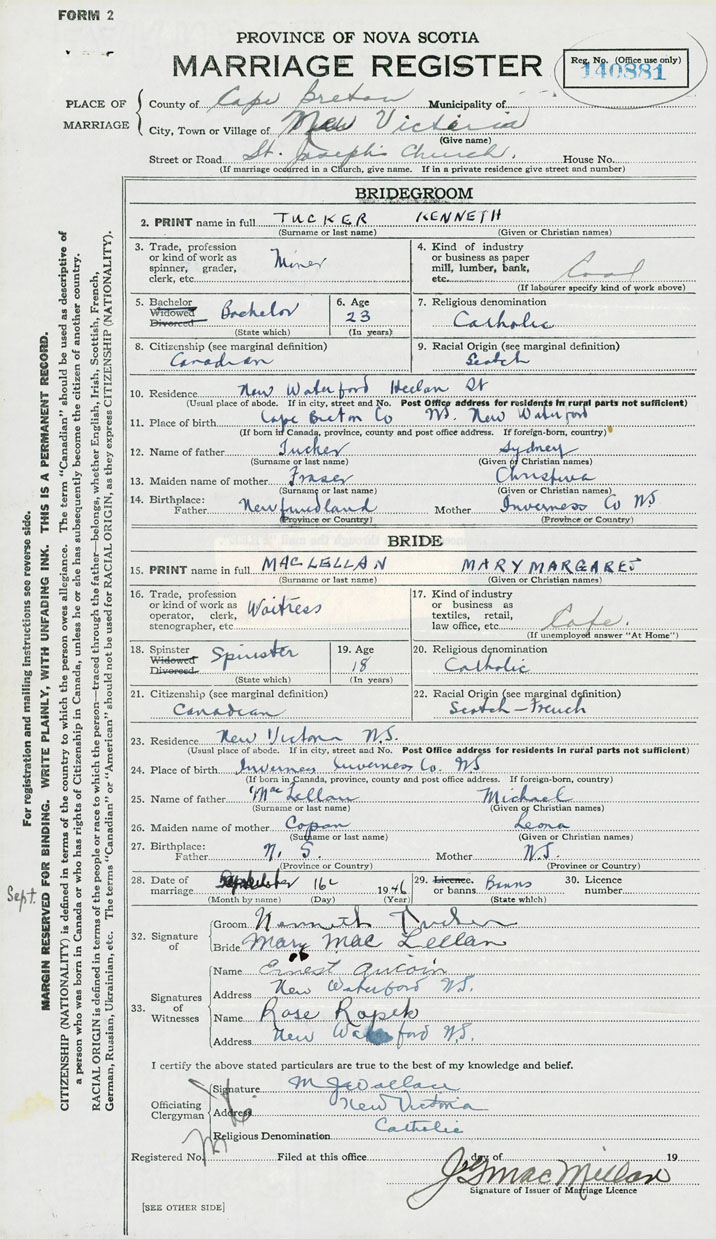 FORM 2
PROVINCE OF NOVA SCOTIA
MARRIAGE REGISTER
Reg. No. (Office use only)
140881
PLACE OF MARRIAGE
County of Cape Breton Municipality of
City, Town or Village of New Victoria
(Give name)
Street or Road St. Joseph's Church. House No.
(If marriage occurred in a Church, give name. If in a private residence give street and number)
BRIDEGROOM
2. PRINT name in full TUCKER KENNETH
(Surname or last name) (Given or Christian names)
3. Trade, profession or kind of work as spinner, grader, clerk, etc. Miner
4. Kind of industry or business as paper mill, lumber, bank, etc. Coal
(If labourer specify kind of work above)
5. Bachelor Widowed Divorced Bachelor
(State which)
6. Age 23
(In years)
7. Religious denomination
Catholic
8. Citizenship (see marginal definition)
Canadian
9. Racial Origin (see marginal definition)
Scotch
10. Residence New Waterford Heelan St
(Usual place of abode. If in city, street and No. Post Office address for residents in rural parts not sufficient)
11. Place of birth Cape Breton Co NS. New Waterford
(If born in Canada, province, county and post office address. If foreign-born, country)
12. Name of father Tucker Sydney
(Surname or last name) (Given or Christian names)
13. Maiden name of mother Fraser Christina
(Surname or last name) (Given or Christian names)
14. Birthplace: Father Newfundland Mother Inverness Co NS
(Province or Country) (Province or Country)
BRIDE
15. PRINT name in full MACLELLAN MARY MARGARET
(Surname or last name) (Given or Christian names)
16. Trade, profession or kind of work as operator, clerk, stenographer, etc. Waitress
17. Kind of industry or business as textiles, retail, law office, etc. Cafe.
(If unemployed answer "At Home")
18. Spinster Widowed Divorced Spinster
(State which)
19. Age 18
(In years)
20. Religious denomination
Catholic
21. Citizenship (see marginal definition)
Canadian
22. Racial Origin (see marginal definition)
Scotch-French
23. Residence New Victoria N.S.
(Usual place of abode. If in city, street and No. Post Office address for residents in rural parts not sufficient)
24. Place of birth Inverness Inverness Co. NS
(If born in Canada, province, county and post office address. If foreign-born, country)
25. Name of father MacLellan Michael
(Surname or last name) (Given or Christian names)
26. Maiden name of mother Leona
(Surname or last name) (Given or Christian names)
27. Birthplace: Father N. S. Mother N.S.
(Province or Country) (Province or Country)
28. Date of marriage September 16 1946
(Month by name) (Day) (Year)
29. Licence or banns Banns
(State which)
30. Licence number
32. Signature of
Groom Kenneth Tucker
Bride Mary Mac Lellan
33. Signatures of Witnesses
Name Ernest Aucoin
Address New Waterford N.S.
Name Rose Rapek
Address New Waterford N.S.
I certify the above stated particulars are true to the best of my knowledge and belief.
Officiating Clergyman
Signature M J Wallace
Address New Victoria
Religious Denomination Catholic
Registered No. Filed at this office day of 19
J MacMillan
Signature of Issuer of Marriage Licence
[SEE OTHER SIDE]
Sept.
For registration and mailing instructions see reverse side.
MARGIN RESERVED FOR BINDING. WRITE PLAINLY, WITH UNFADING INK. THIS IS A PERMANENT RECORD.
CITIZENSHIP (NATIONALITY) is defined in terms of the country to which the person owes allegiance. The term "Canadian" should be used as descriptive of
a person who was born in Canada or who has rights of Citizenship in Canada, unless he or she has subsequently become the citizen of another country.
RACIAL ORIGIN is defined in terms of the people or race to which the person—traced through the father—belongs, whether English, Irish, Scottish, French,
German, Russian, Ukrainian, etc. The terms "Canadian" or "American" should not be used for RACIAL ORIGIN, as they express CITIZENSHIP (NATIONALITY).